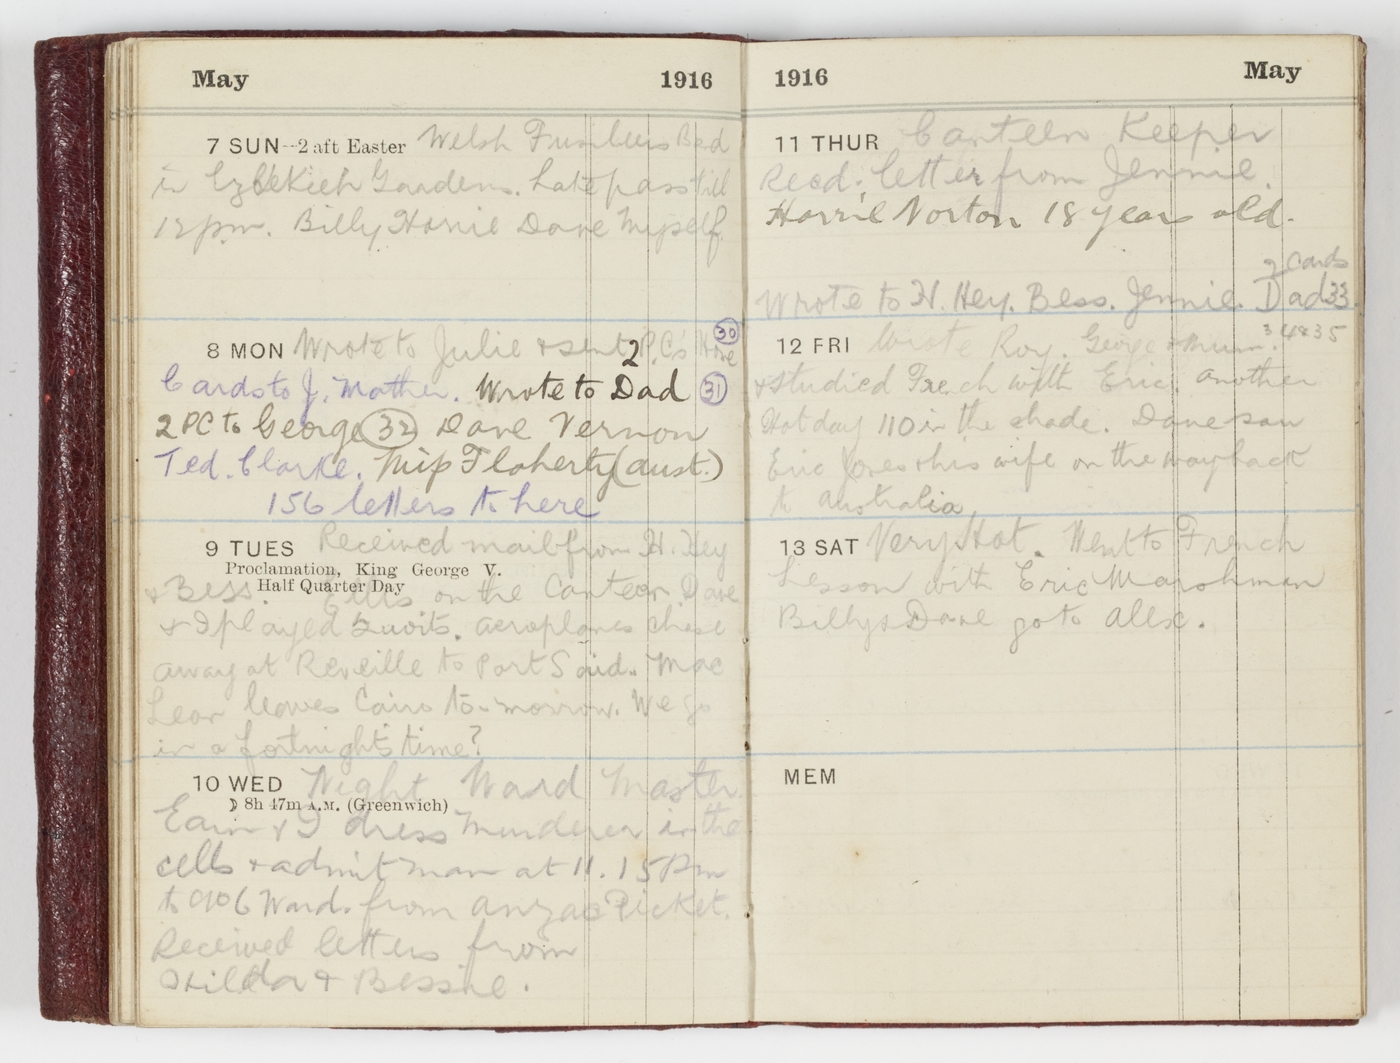 May 1916
7 SUN--2 aft Easter Welsh Fusiliers Band
in Ezbekieh Gardens. Late pass till
12 pm. Billy Horrie Dave Myself
8 MON Wrote to Julie & sent 2 P.C's Home 30
Cards to J. Mather. Wrote to Dad 31
2 PC to George 32 Dave Vernon
Ted. Clarke. Mip Flaherty (aust.)
156 letters to here
9 TUES Received mail from H. Hey
Proclamation, King George V.
Half Quarter Day
& Bess. on the Canteen. Dave
& I played Quoits. aeroplanes chase
away at Reveille to Port Said. Mac
Lean leaves Cairo to-morrow. We go
in a fortnight's time?
10 WED Night Ward Master
☽ 8h 47m A.M. (Greenwich)
& I dress Murderer in the
cells & admit man at 11.15 Pm
to Ward. from Anzac Picket.
Received letters from
Hilda & Bessie.
1916 May
11 THUR Canteen Keeper
Recd. letter from Jennie.
Horrie Norton 18 years old.
2 Cards
Wrote to H. Hey. Bess. Jennie. Dad 33.
34 & 35
12 FRI Wrote Roy. George & Mum.
& studied French with Eric. another
Hot day 110 in the shade. Dave saw
Eric Jones & his wife on the way back
to Australia.
13 SAT Very Hot. Went to French
Lesson with Eric Marshman
Billy & Dave go to Alex.
MEM